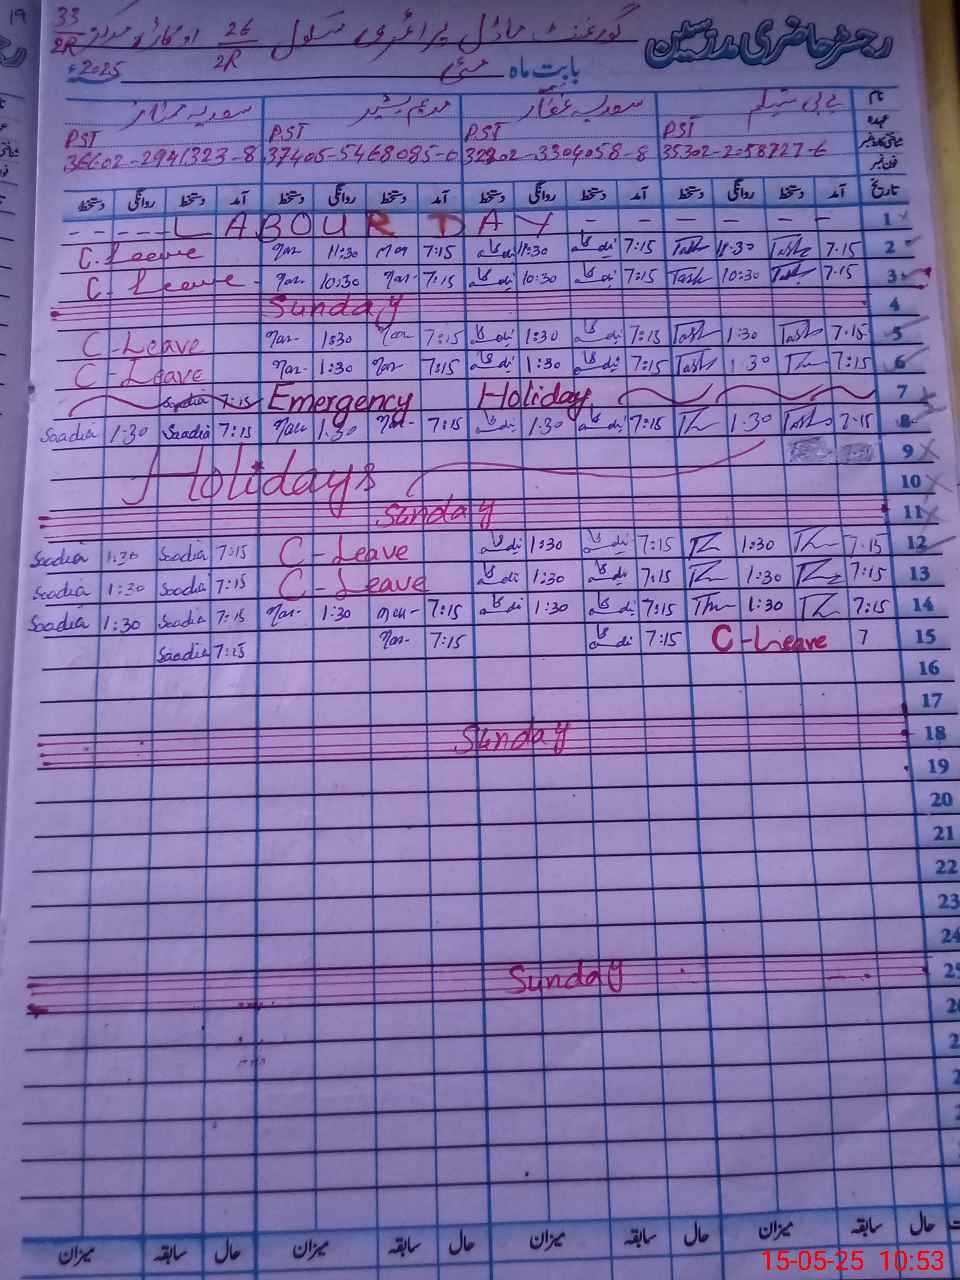 رجسٹر حاضری مدرسین
گورنمنٹ ماڈل پرائمری سکول 26/2R اوکاڑہ 33/2R
بابت ماہ مئی 2025ء
نام سعدیہ غفار مریم بشیر سعدیہ
عہدہ PST PST PST PST
شناختی کارڈ نمبر 35302-2058727-6 32802-3304058-8 37405-5468085-0 36602-2941323-8
فون نمبر
تاریخ آمد دستخط روانگی دستخط آمد دستخط روانگی دستخط آمد دستخط روانگی دستخط آمد دستخط روانگی دستخط
- - - - - L A B O U R D A Y - - - - - - 1
C. Leeve Mar 11:30 Mar 7:15 11:30 7:15 Tash 11.30 Tash 7.15 2
C. Leeve Mar 10:30 Mar 7:15 10:30 7:15 Tash 10:30 Tash 7.15 3
Sunday 4
C-Leave Mar 1:30 Mar 7:15 1:30 7:15 Tash 1.30 Tash 7.15 5
C-Leave Mar 1:30 Mar 7:15 1:30 7:15 Tash 1.30 Th 7:15 6
Saadia 7:15 Emergency Holiday 7
Saadia 1:30 Saadia 7:15 Mar 1:30 Mar 7:15 1:30 7:15 Th 1.30 Tash 7.15 8
9
Holidays 10
Sunday 11
Saadia 1:30 Saadia 7:15 C-Leave 1:30 7:15 Th 1:30 Th 7.15 12
Saadia 1:30 Saadia 7:15 C-Leave 1:30 7:15 Th 1:30 Th 7:15 13
Saadia 1:30 Saadia 7:15 Mar 1:30 Mar 7:15 1:30 7:15 Th 1:30 Th 7:15 14
Saadia 7:15 Mar 7:15 7:15 C-Leave 7 15
16
17
Sunday 18
19
20
21
22
23
24
Sunday 25
حال سابقہ میزان حال سابقہ میزان حال سابقہ میزان حال سابقہ میزان
15-05-25 10:53